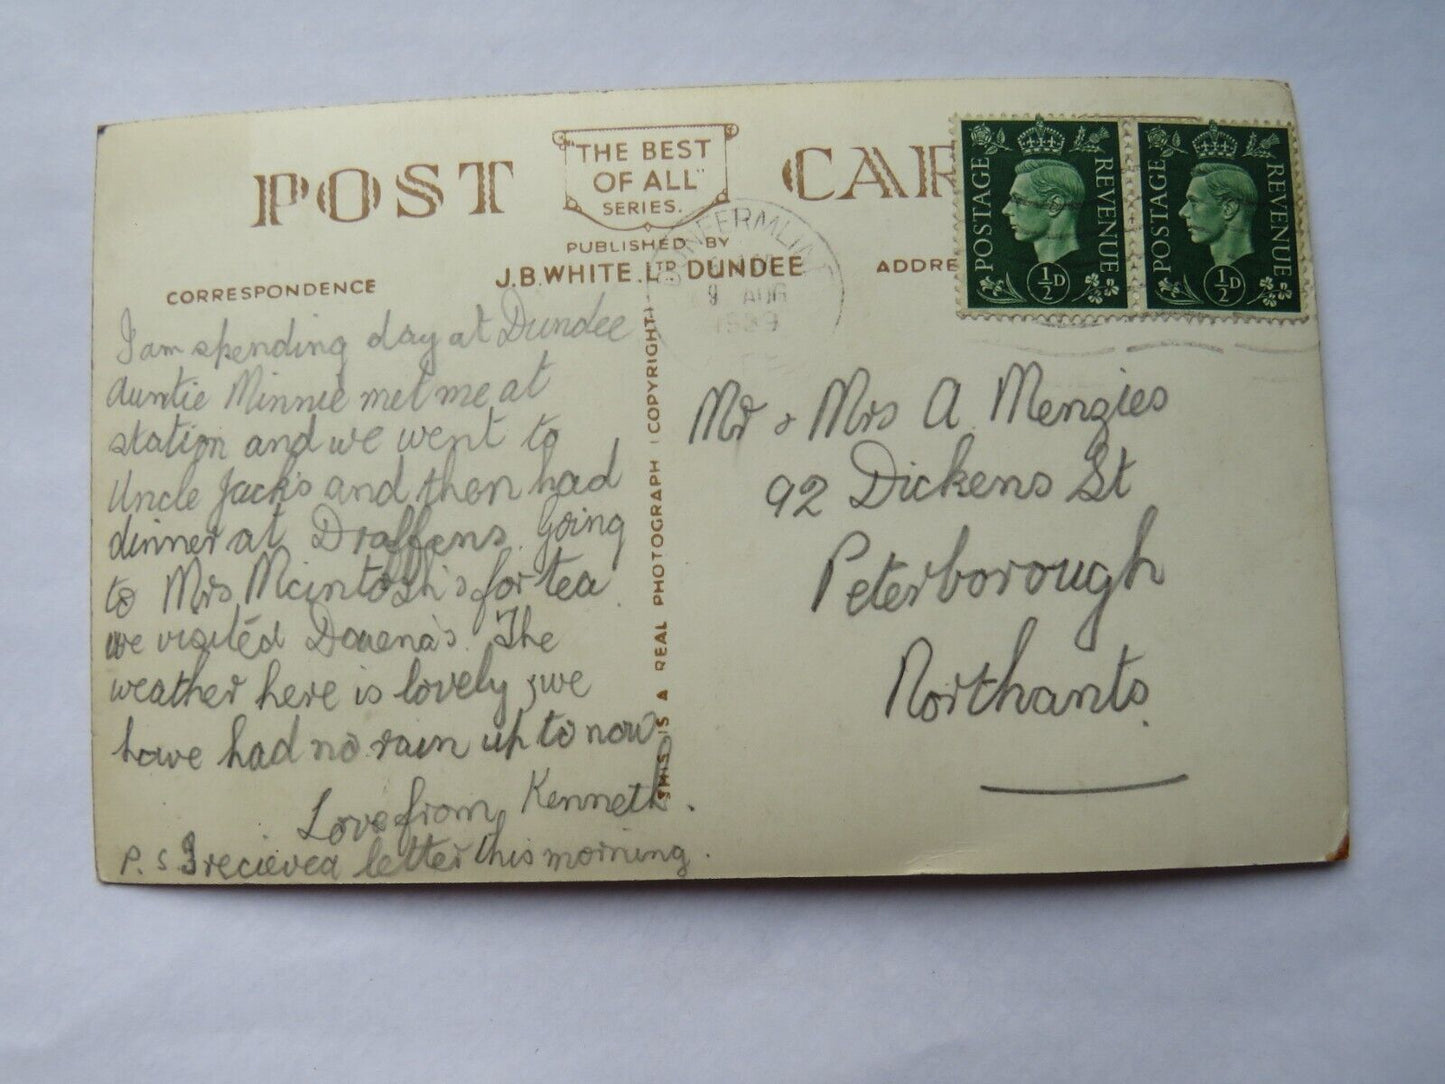 POST CAR
"THE BEST
OF ALL"
SERIES.
PUBLISHED BY
J.B. WHITE. LTD. DUNDEE
CORRESPONDENCE
ADDRE
DUNFERMLINE
9 AUG
1939
POSTAGE REVENUE
½D
POSTAGE REVENUE
½D
THIS IS A REAL PHOTOGRAPH COPYRIGHT
I am spending day at Dundee
Auntie Minnie met me at
station and we went to
Uncle Jack's and then had
dinner at Draffens. Going
to Mrs Mcintosh's for tea.
we visited The
weather here is lovely, we
have had no rain up to now
Love from Kenneth.
P.S I recieved letter this morning.
Mr & Mrs A Menzies
92 Dickens St
Peterborough
Northants.